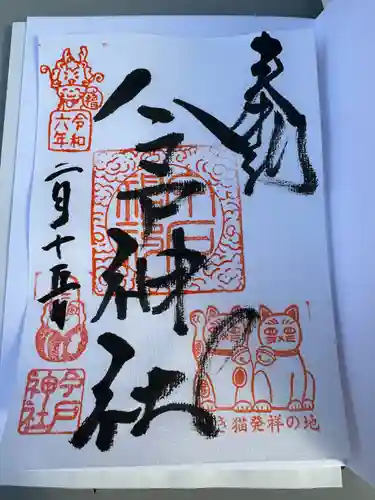 奉拝
今戸神社
令和
六年
二月十五日
今戸
神社
猫発祥の地